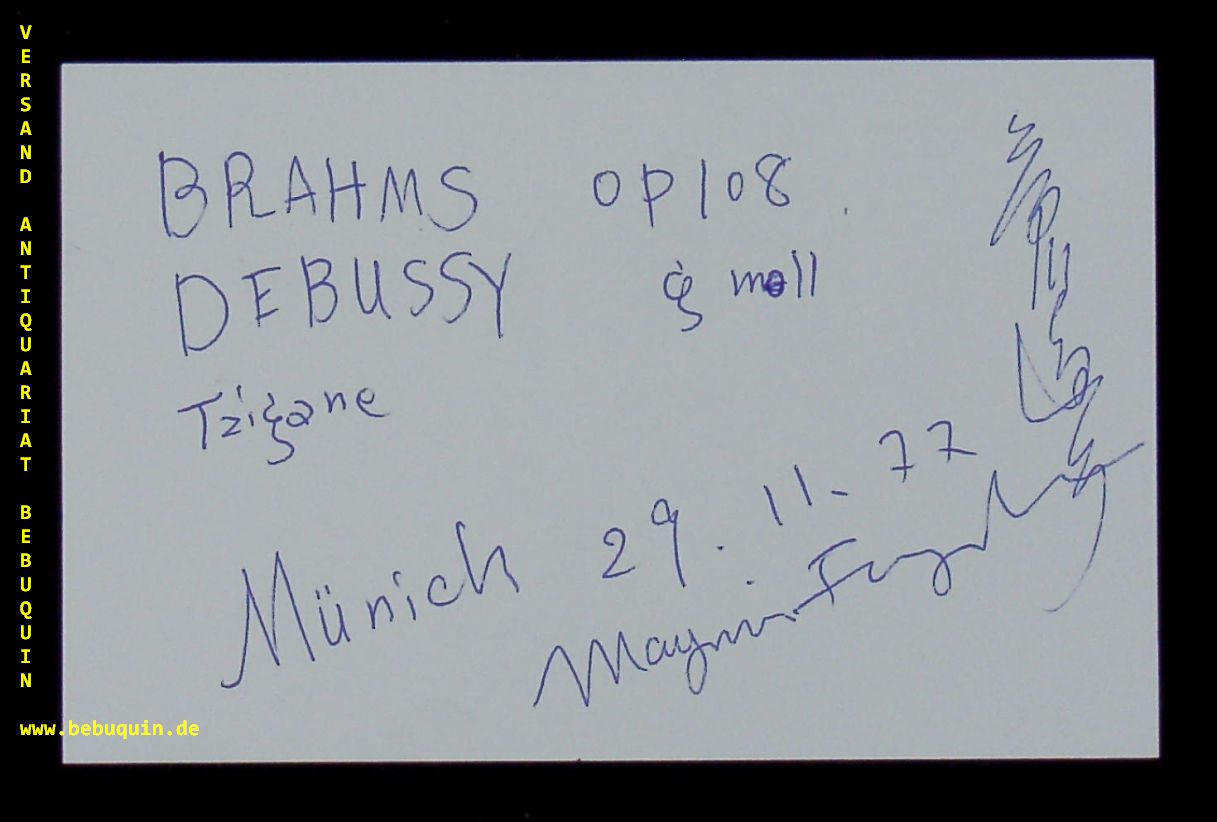 VERSAND ANTIQUARIAT BEBUQUIN
www.bebuquin.de
BRAHMS op 108
DEBUSSY g moll
Tzigane
Münich 29. 11. 77
Mayumi Fujikawa